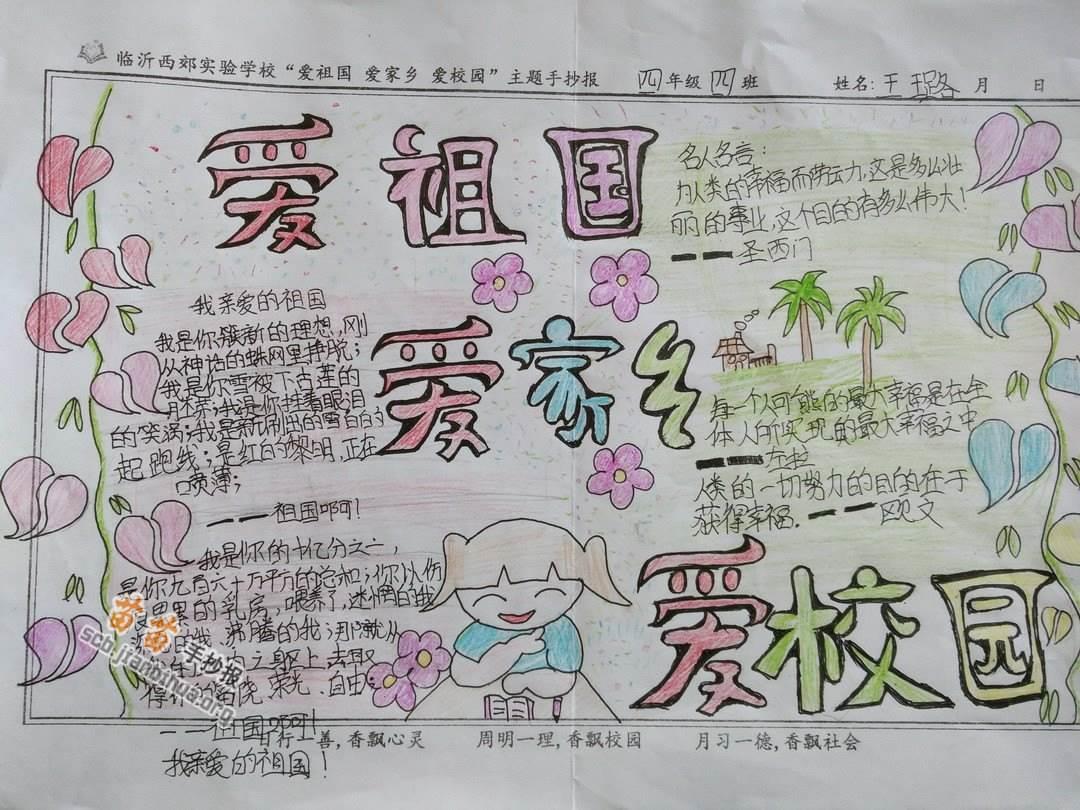 临沂西郊实验学校“爱祖国 爱家乡 爱校园”主题手抄报 四年级四班 姓名:王璐 月 日
爱祖国
名人名言:
为人类的幸福而劳动力,这是多么壮
丽的事业,这个目的有多么伟大!
——圣西门
我亲爱的祖国
我是你簇新的理想,刚
从神话的蛛网里挣脱;
我是你雪被下古莲的
胚芽;我是你挂着眼泪
的笑涡;我是新刷出的雪白的
起跑线;是绯红的黎明,正在
喷薄;
——祖国啊!
爱家乡
每一个人可能的最大幸福是在全
体人所实现的最大幸福之中
——左拉
人类的一切努力的目的在于
获得幸福.——欧文
我是你的十亿分之一,
是你九百六十万平方的总和;你以伤
累累的乳房,喂养了,迷惘的我
的我,沸腾的我;那就从
之躯上,去取
得 荣光、自由;
——祖国啊!
我亲爱的祖国!
爱校园
日行一善,香飘心灵 周明一理,香飘校园 月习一德,香飘社会
苗苗手抄报
scb.jianbihua.org